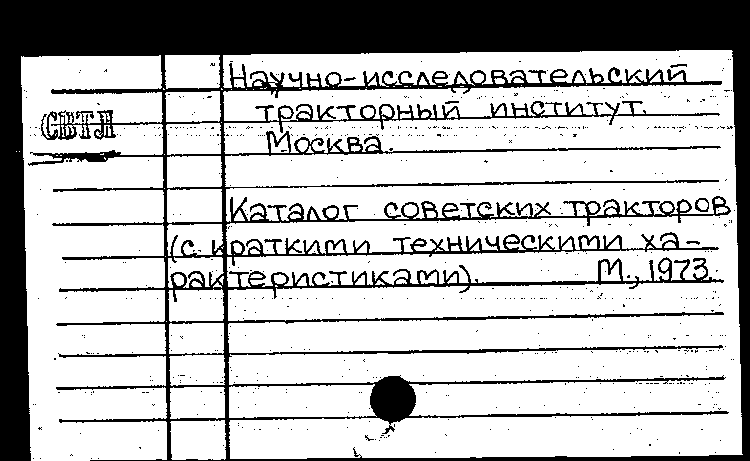 Научно-исследовательский
тракторный институт.
Москва.
СВТЯ
Каталог советских тракторов
(с краткими техническими ха-
рактеристиками). М., 1973.